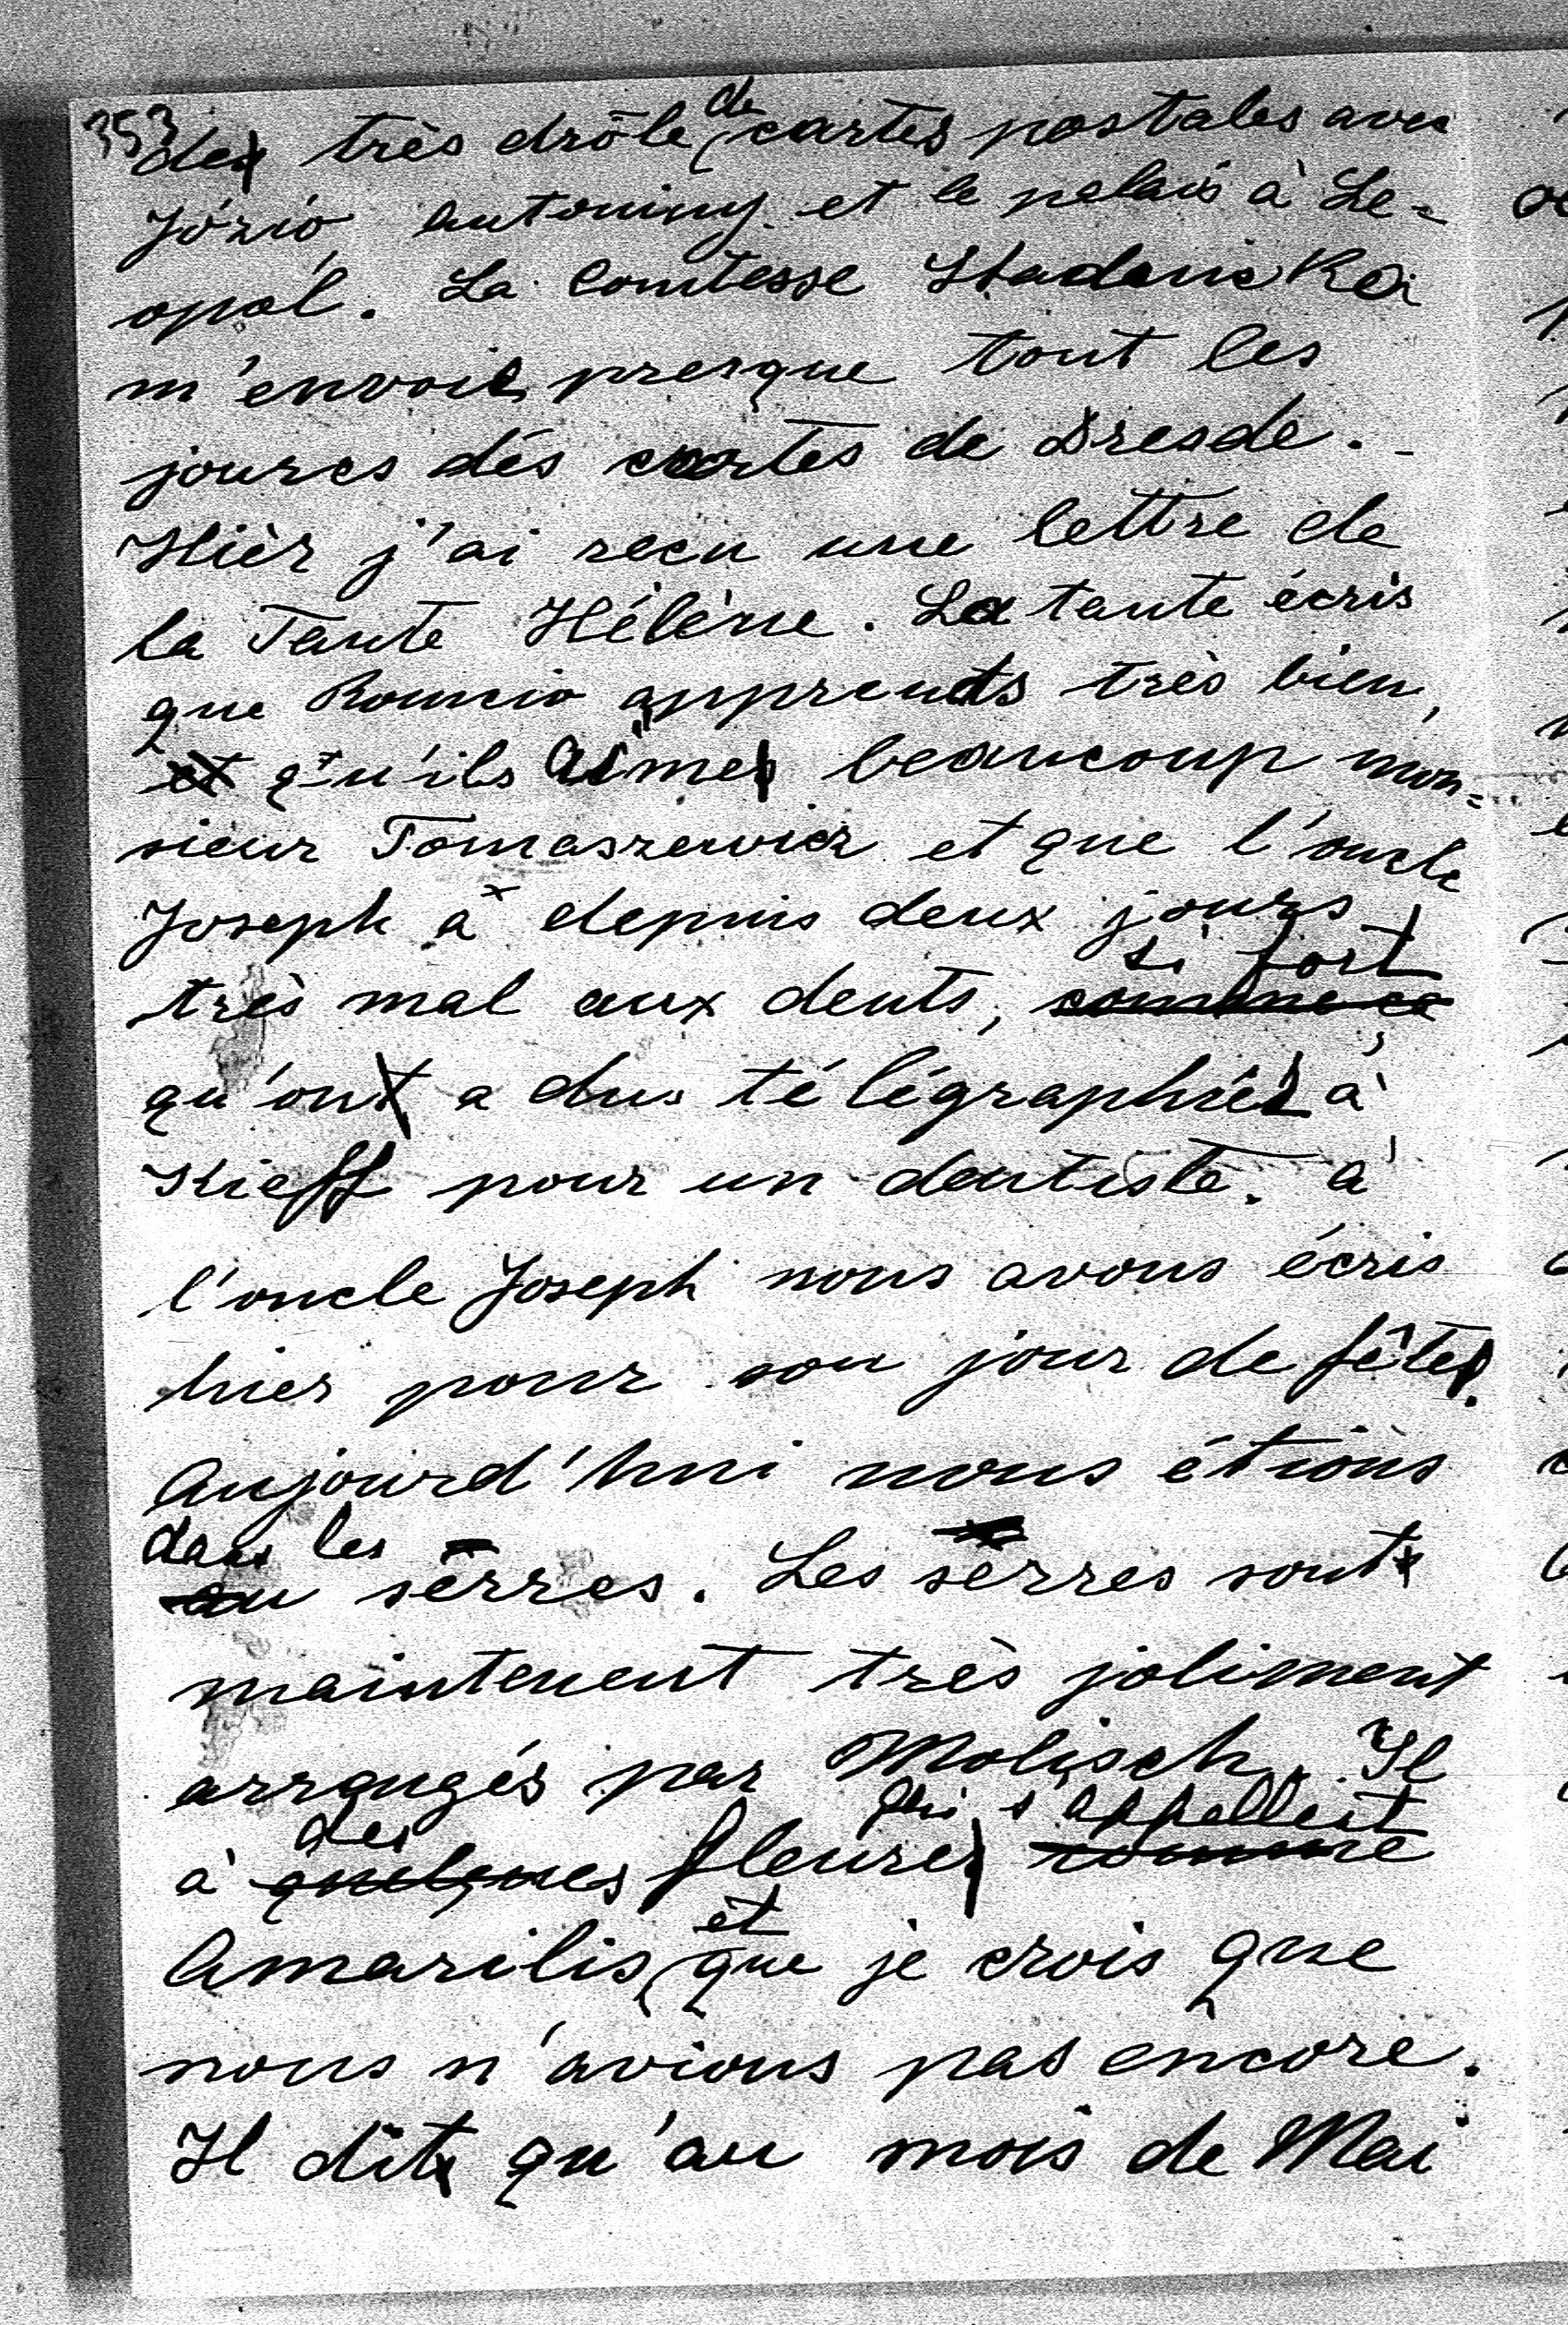 353
de
des très drôle cartes postales avec
Józio, Antoniny et le palais à Le=
opol. La Comtesse Stadnicka
m'envoie presque tout les
jours dés cartes de Dresde. -
Hièr j'ai recu une lettre de
la Tante Hélène. La tante écris
que Romcio apprends très bien,
et qu'ils aimes beaucoup mon=
sieur Tomaszewicz et que l'oncle
Joseph a depuis deux jours
si fort
très mal aux dents, comme ce
qu'ont a dus télégraphier à
Kieff pour un dentiste. à
l'oncle Joseph nous avons écris
hier pour son jour de fêtes.
Aujourd'hui nous étions
dans les
au sêrres. Les sêrres sont
maintenent très joliment
arrangés par Molisch. Il
des qui s'appellent
à quelques fleures comme
et
Amarilis que je crois que
nous n'avions pas encore.
Il dit qu'au mois de Mai